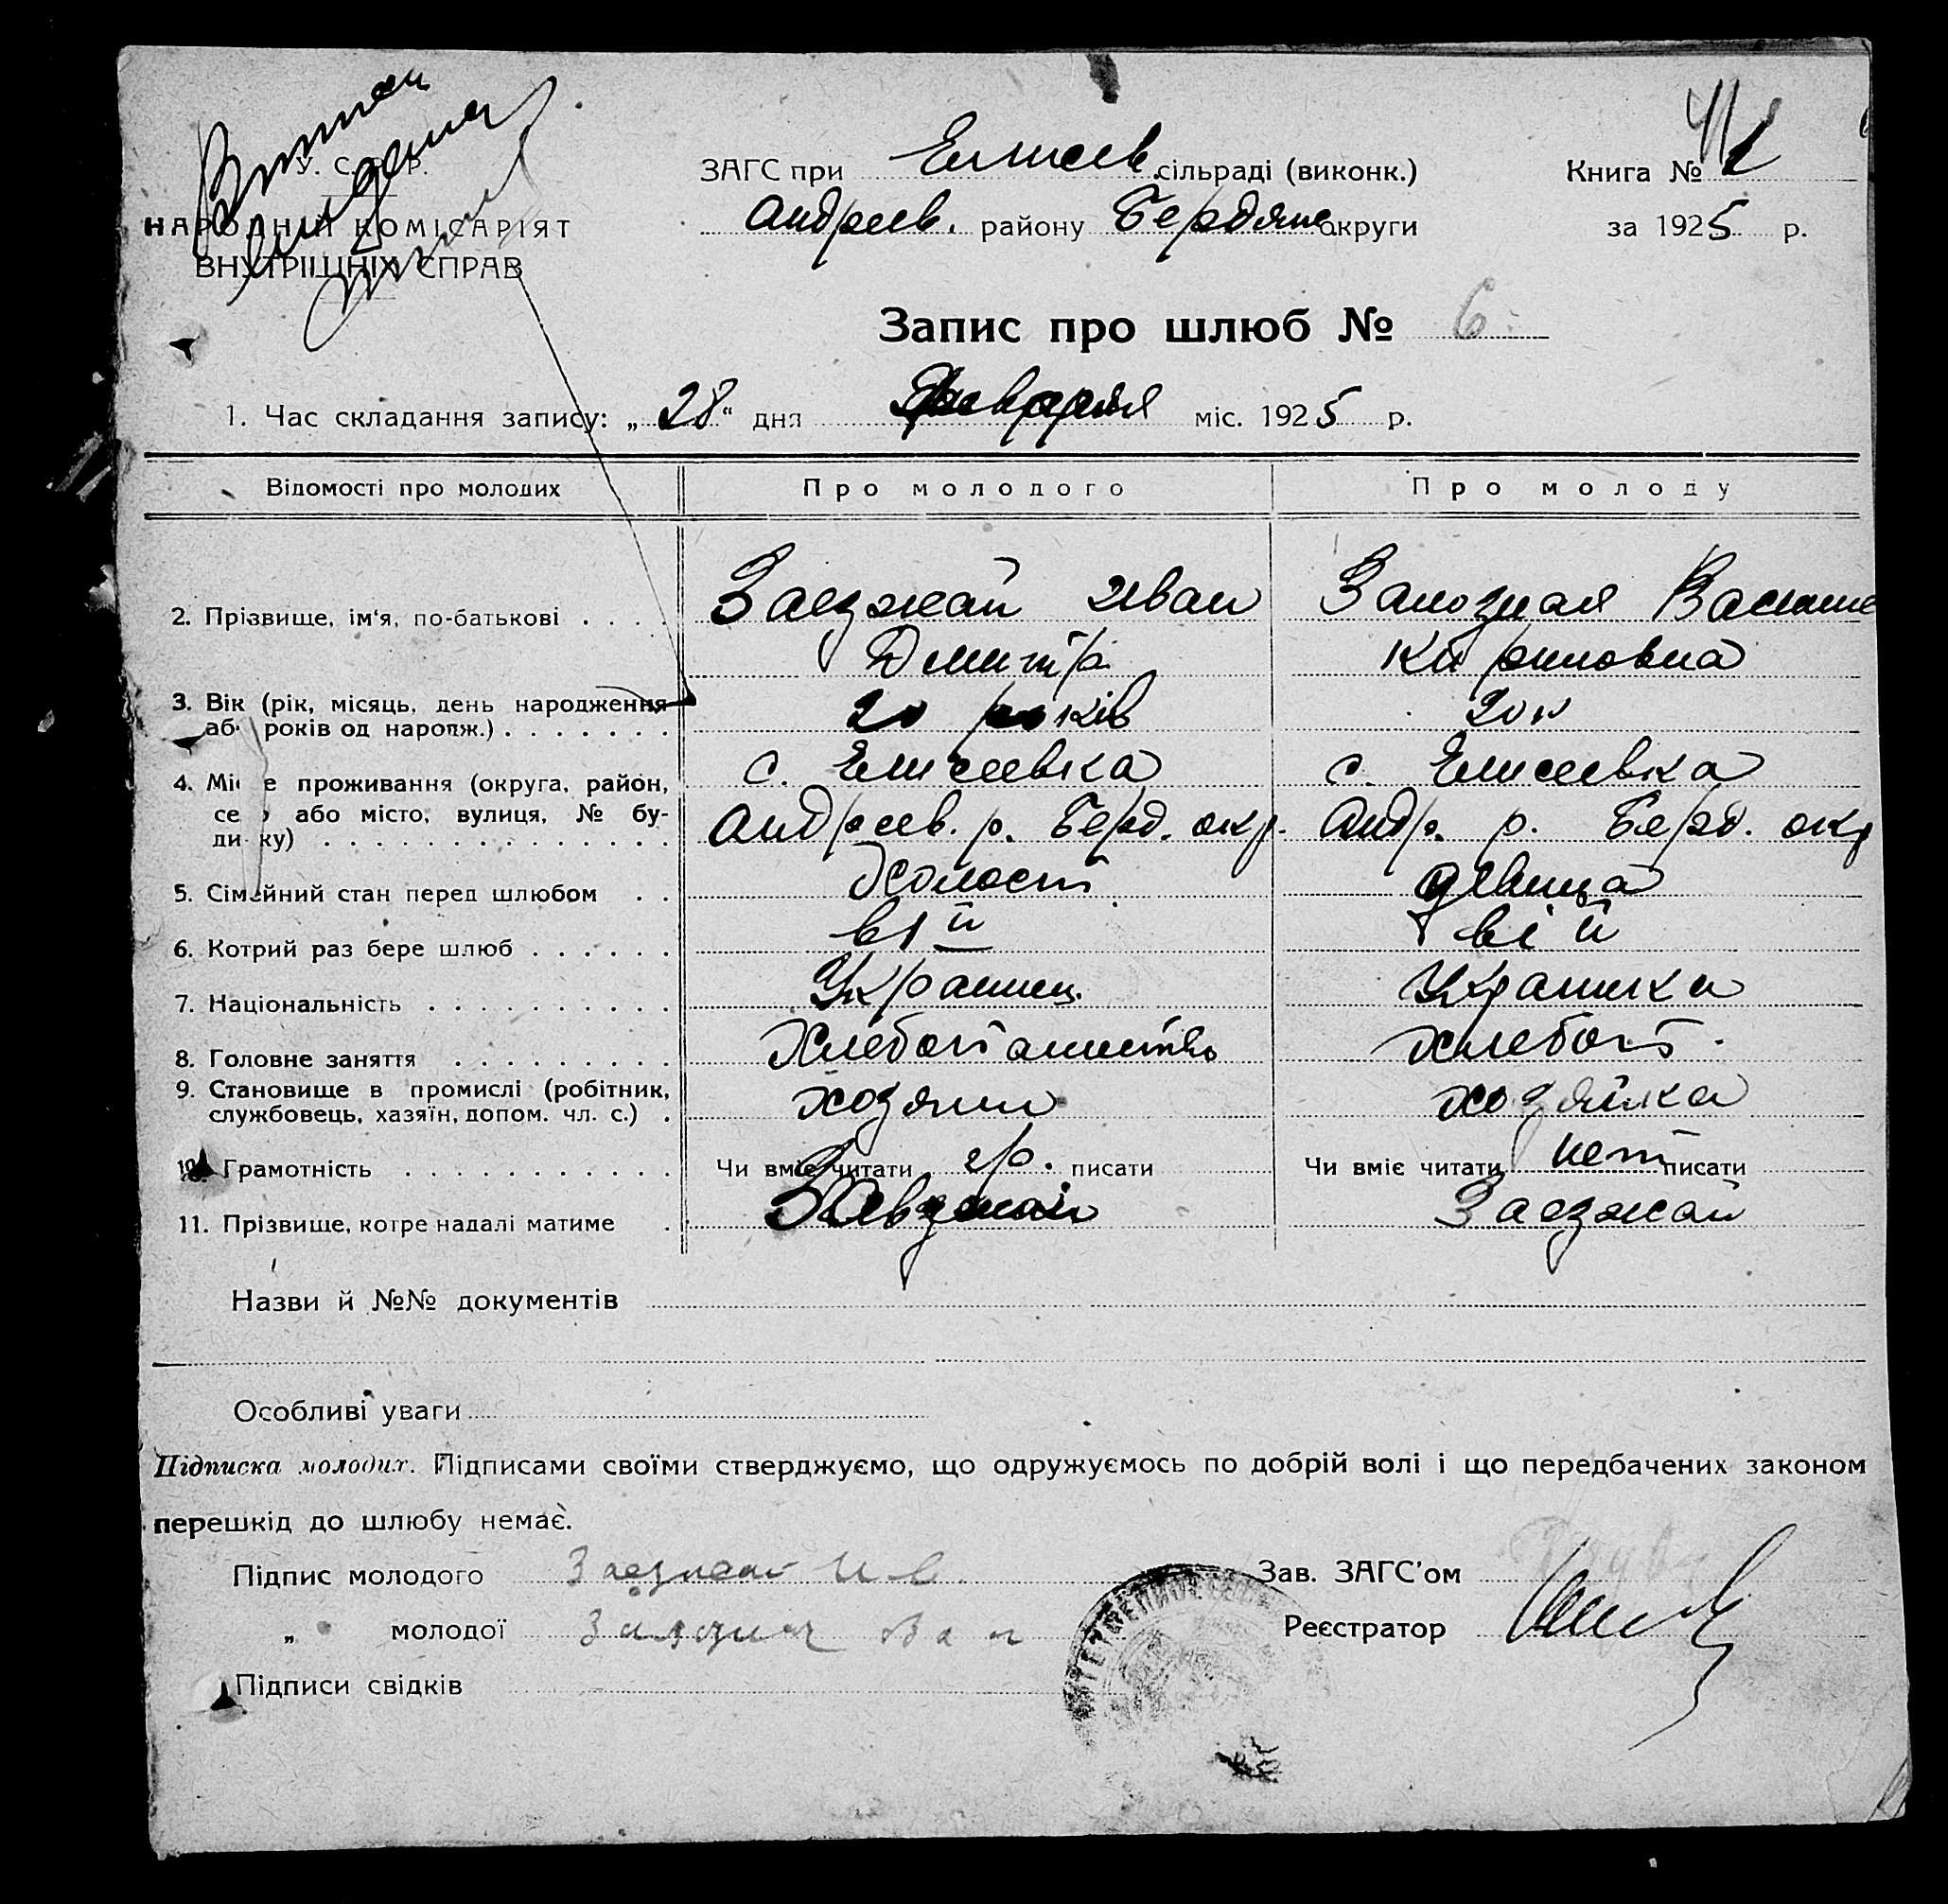 У. С. Р. Р.
НАРОДНІЙ КОМІСАРІЯТ
ВНУТРІШНІХ СПРАВ
ЗАГС при Елисеев. сільраді (виконк.)
Андреев. району Бердянс округи
Книга № 1
за 1925 р.
Запис про шлюб № 6
1. Час складання запису: „28“ дня февраля міс. 1925 р.
Відомості про молодих Про молодого Про молоду
2. Прізвище, ім'я, по-батькові . . . . Заезжай Иван Дмитр.
Кириловна
3. Вік (рік, місяць, день народження або років од народж.) . . . . . . . 20 років 20
4. Місце проживання (округа, район, село або місто, вулиця, № будинку) . . . . с. Елисеевка с. Елисеевка
Андреев. р. Берд. окр. Андр. р. Берд. окр
5. Сімейний стан перед шлюбом . . Холост девица
6. Котрий раз бере шлюб . . . . . . в 1й в 1й
7. Національність . . . . . . . . . . Украинец Украинка
8. Головне заняття . . . . . . . . . Хлебопашество хлебоп.
9. Становище в промислі (робітник, службовець, хазяїн, допом. чл. с.) . хозяин хозяйка
10. Грамотність . . . . . . . . . . . Чи вміє читати гр. писати Чи вміє читати нет писати
11. Прізвище, котре надалі матиме . Заезжай Заезжай
Назви й №№ документів
Особливі уваги
Підписка молодих. Підписами своїми стверджуємо, що одружуємось по добрій волі і що передбачених законом
перешкід до шлюбу немає.
Підпис молодого Заезжай Ив
Зав. ЗАГС'ом
„ молодої
Реєстратор
Підписи свідків